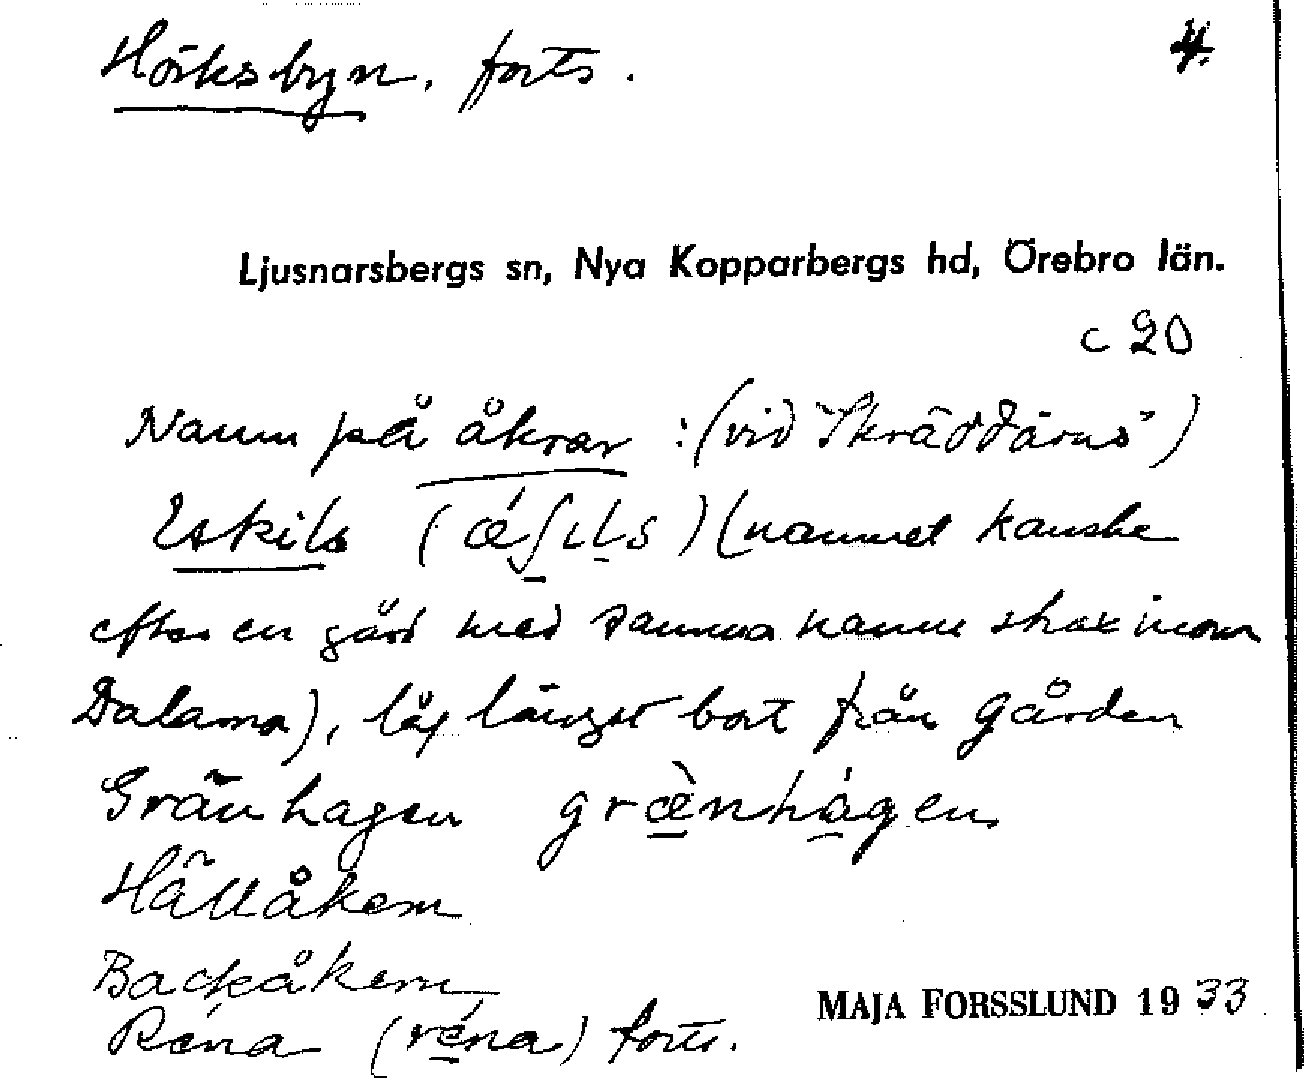 Hörksbyn, forts. 4.
Ljusnarsbergs sn, Nya Kopparbergs hd, Örebro län.
c 20
Namn på åkrar : (vid "Skräddärns")
Eskils (ǽʃɩʟs) (namnet kanske
efter en gård med samma namn strax inom
Dalarna), låg längst bort från gården
Gränhagen græ̀nhágen
Hällåkern
Backåkern
Réna (réna) forts.
MAJA FORSSLUND 1933